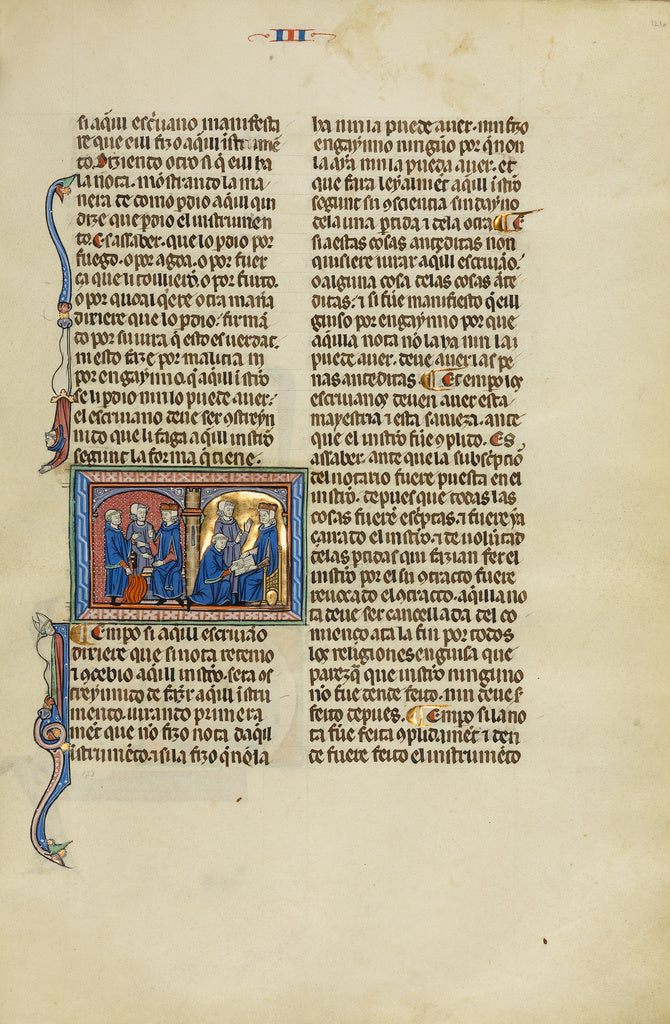 III
si aq̄ill esc̄uano manifesta
re que eill fizo aq̄ill īstrumē
to. Diziendo otro si q̄ eill ha
la nota. mōstrando la ma
nera de como ꝑdio aq̄ill qui
dize que ꝑdio el instrumen
to. Es assaber. que lo ꝑdio por
fuego. o por agoa. o por fuer
ça que li toillierō. o por furto.
o por qual q̄ere otra maña
dixiere que lo ꝑdio. firmā
do por su iura q̄ esto es uerdat.
ni esto fize por malicia ni
por engaynno. q̄ aq̄ill īstro
se li ꝑdio ni lo puede auer.
el escriuano deue ser ꝯstreyn
nido que li faga aq̄ill instro
segunt la forma q̄ tiene.
Empo si aq̄ill escriuāo
dixiere que si nota retenio
ꝯcebio aq̄ill instro. sera ꝯs
treynnido de fazer aq̄ill istru
mento. iurando primera
mēt que no fizo nota daq̄ll
istrumēto. ⁊ si la fizo q̄ no la
ha nin la puede auer. nin fizo
engaynno ninguno por q̄ non
la aya nin la pueda auer. et
que fara leyalmēt aq̄ill īstro
segunt su ꝯsciencia sin dayno
dela una ꝑtida ⁊ dela otra. ¶ E
si aestas cosas anteditas non
quisiere iurar aq̄ill escriuāo.
o alguna cosa delas cosas āte
ditas. ⁊ si fue manifiesto q̄ eill
guiso por engaynno por que
aq̄illa nota nō la ya nin la
puede auer. deue auer las pe
nas anteditas. ¶ Et empo los
escriuanos deuen auer esta
mayestria ⁊ esta sauieza. ante
que el instro fue ꝯplido. Es
assaber. ante que la subscēptiō
del notario fuere puesta en el
instro. depues que todas las
cosas fuerē esc̄ptas. ⁊ fuere ya
çarrado el instro. ⁊ de uolūtad
delas ꝑtidas qui fazian fer el
instro por el su ꝯtracto fuere
reuocado el ꝯtracto. aq̄illa no
ta deue ser cancellada del co
mienço ata la fin por todos
los religiones en guisa que
parezq̄ que instro ninguno
no fue dende feito. nin deue s̄
feito depues. ¶ Empo si la no
ta fue feita ꝯplidamēt ⁊ den
de fuere feito el instrumēto